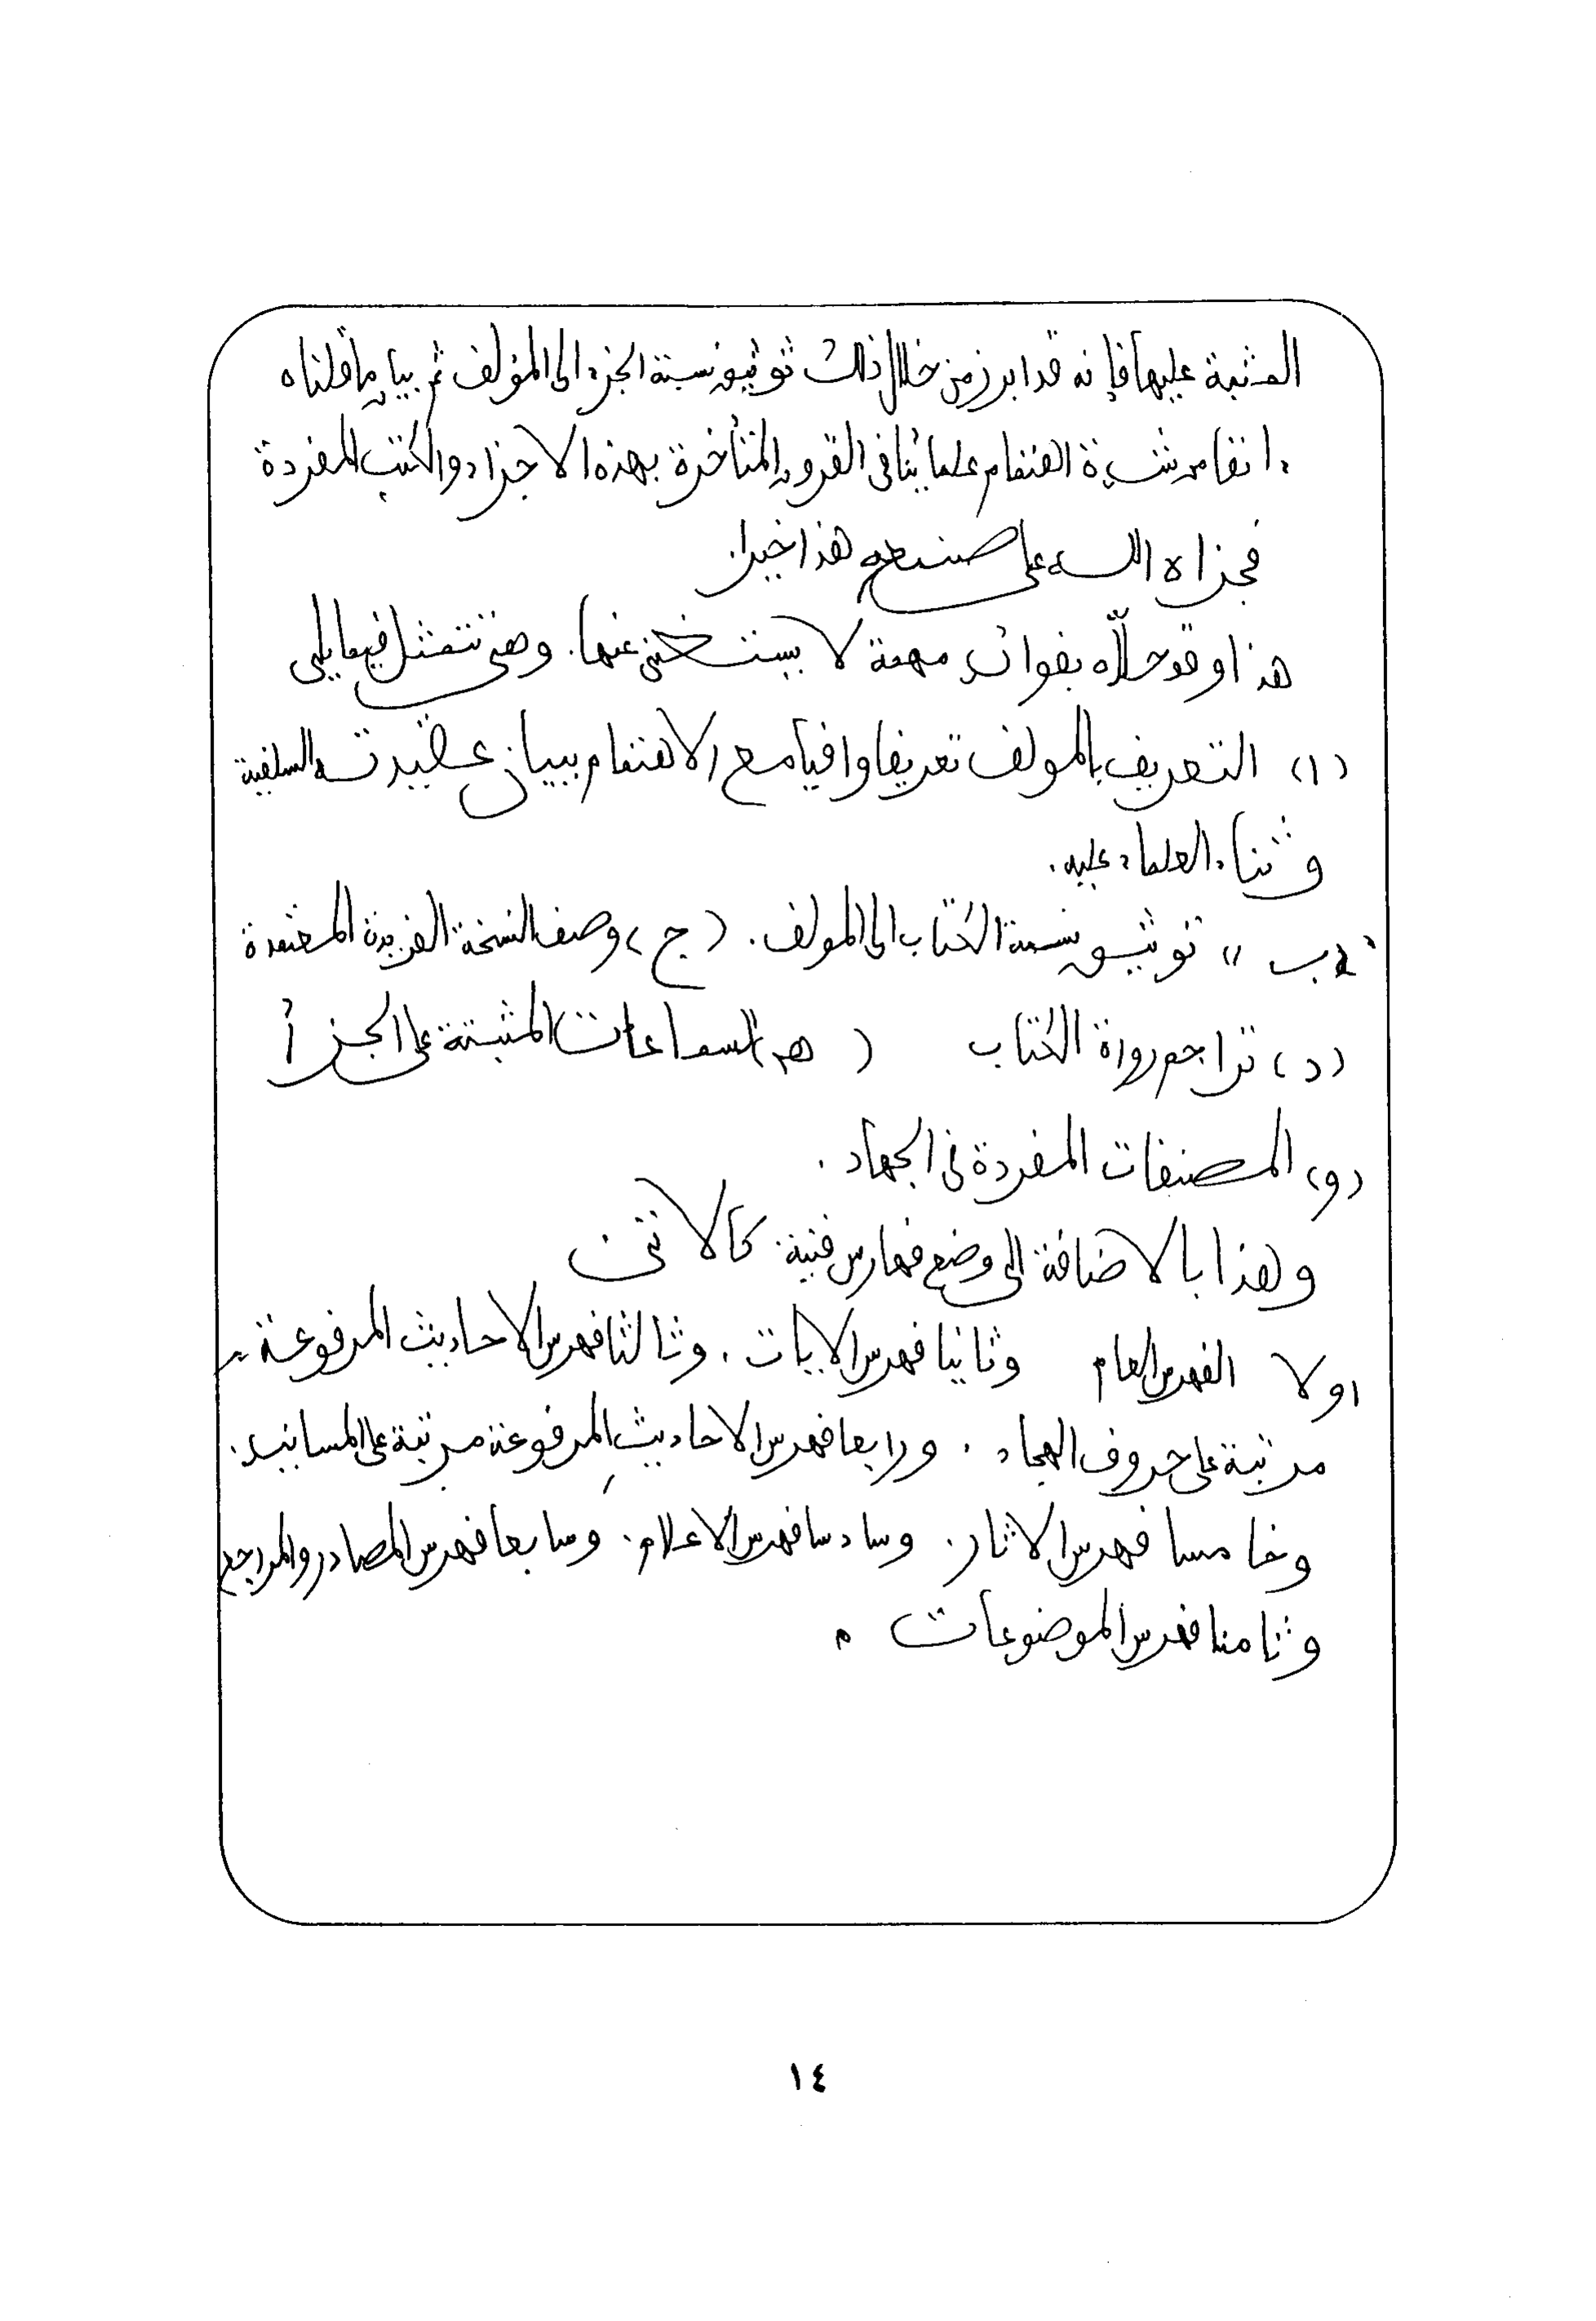 المثبة عليها فإنه قد ابرز من خلال ذلك توثيق نسبة الجزء الى المؤلف ثم بيان ماقلناه
انفا من شدة اهتمام علمائنا في القرون المتأخرة بهذه الاجزاء والكتب المفردة
فجزاه الله على صنيعه هذا خيرا.
هذا وقد حلاّه بفوائد مهمة لا يستغنى عنها. وهي تتمثل فيما يلي
(١) التعريف بالمولف تعريفا وافيا مع الاهتمام ببيان عقيدته السلفية
وثناء العلماء عليه.
(ب) توثيق نسبة الكتاب الى المولف. (ج) وصف النسخة الفريدة المعتمدة
(د) تراجم رواة الكتاب (هـ) السماعات المثبتة على الجزأ
(و) المصنفات المفردة في الجهاد.
وهذا بالاضافة الى وضع فهارس فنية كالاتى
اولا الفهرس العام وثانيا فهرس الايات. وثالثا فهرس الاحاديث المرفوعة
مرتبة على حروف الهجاء. ورابعا فهرس الاحاديث المرفوعة مرتبة على المسانيد.
وخامسا فهرس الاثار. وسادسا فهرس الاعلام. وسابعا فهرس المصادر والمراجع
وثامنا فهرس الموضوعات.
١٤